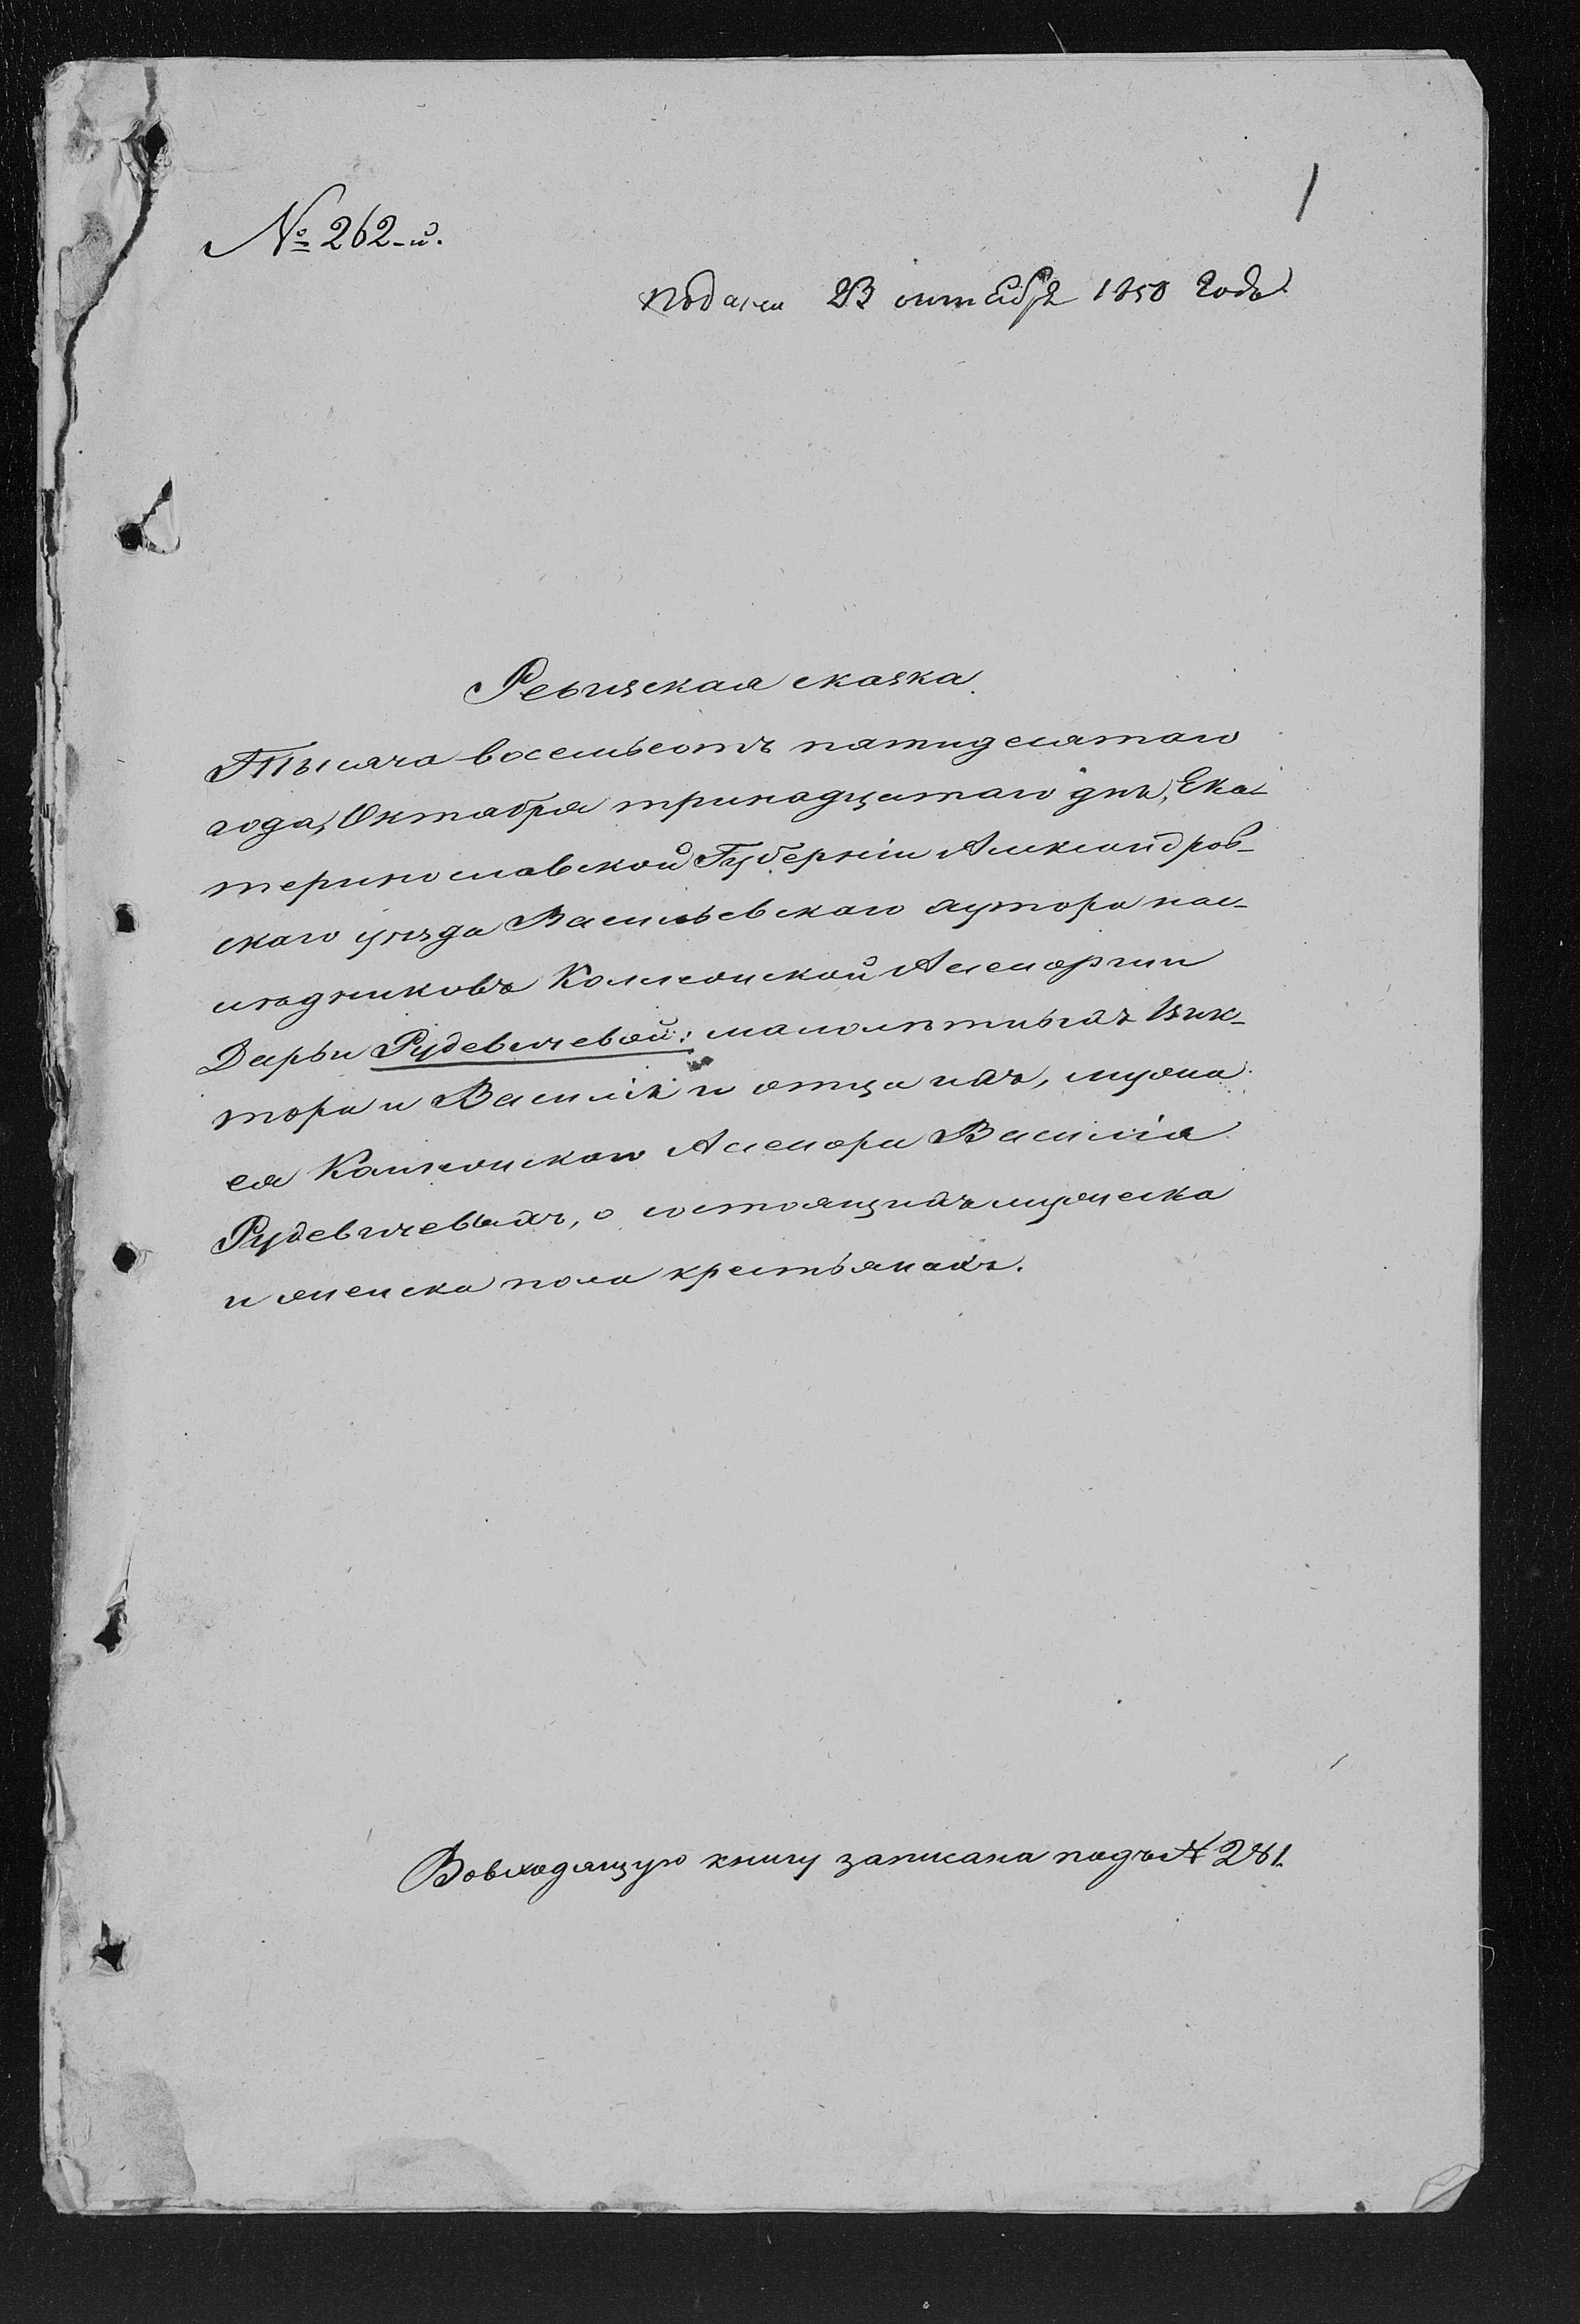 № 262-й.
1
подана 23 октября 1850 года
Ревизская сказка
Тысяча восемьсотъ пятидесятаго
года, Октября тринадцатаго дня, Ека-
теринославской Губерніи Александров-
скаго уѣзда Васильевскаго хутора нас-
лѣдниковъ Коллежской Ассесоршии
Дарьи Рудевичевой: малолѣтныхъ Вик-
тора и Василія и отца ихъ, мужа
ея Коллежскаго Ассесора Василія
Рудевичевыхъ, о состоящихъ мужеска
и женска пола крестьянахъ.
Вовходящую книгу записана подъ № 281.